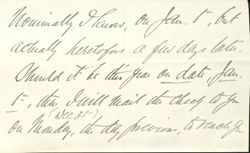 Nominally I know, on Jan. 1st, but
actually heretofore a few days late.
Should it be this year on date, Jan.
1st, then I will mail the check to you
(Dec. 31st)
on Monday, the day previous, to reach you